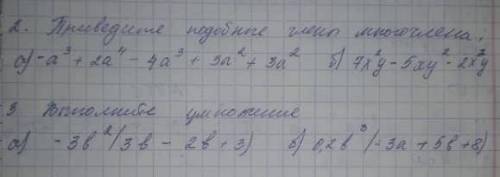 2. Приведите подобные члены многочлена.
а) -a³ + 2a⁴ - 4a³ + 3a² + 3a² б) 7x²y - 5xy² - 2x²y
3 Выполните умножение
а) -3b²(3b - 2b + 3) б) 0,2b³(-3a + 5b + 8)